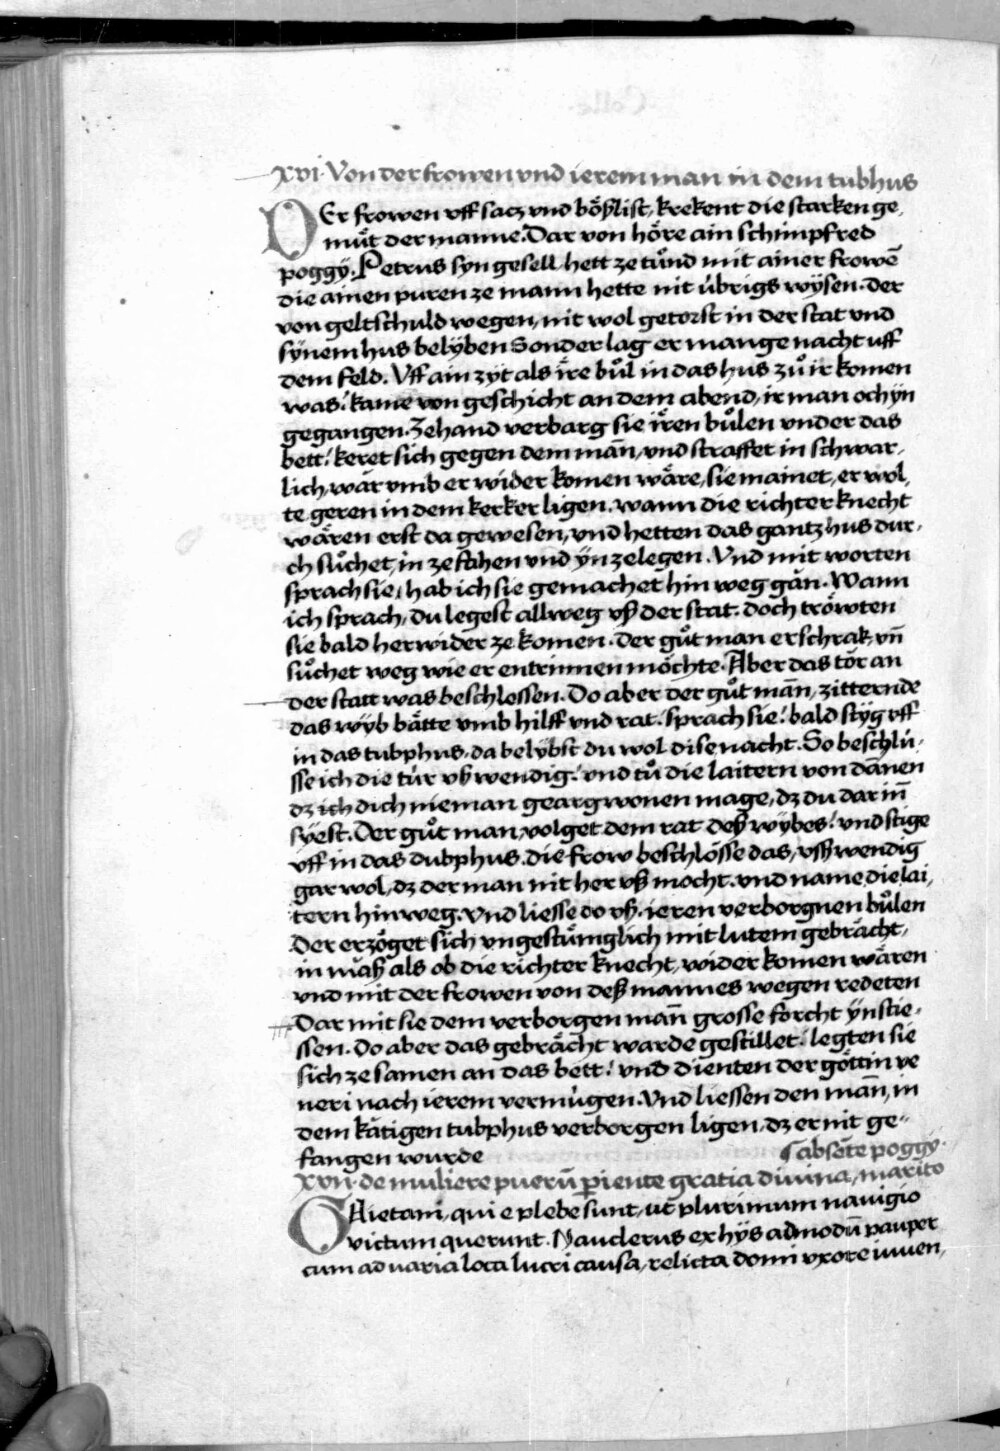 xvi. Von der frowen vnd ierem man in dem tubhus
DEr frowen vff satz vnd bo̊ßlist, krekent die starken ge,
mu̍t der manne. Dar von hőre ain schimpfred
poggÿ. Petrus syn gesell hett ze tůnd mit ainer frowē
die ainen puren ze mann hette nit ūbrigs wÿsen. der
von geltschuld wegen, nit wol getorst in der stat vnd
sÿnem hus belÿben Sonder lag er mange nacht uff
dem feld. Vff ain zÿt als ire bůl in das hus zů ir komen
was: kame von geschicht an dem abend, ir man och ÿn
gegangen. Zehand verbarg sie iren bůlen vnder das
bett: keret sich gegen dem mañ, vnd straffet in schwar,
lich, war vmb er wider komen wåre, sie mainet, er wol,
te geren in dem kerker ligen. wann die richter knecht
wåren erst da gewesen, vnd hetten das gantz hus dur,
ch sůchet, in ze fahen vnd ÿn zelegen. Vnd mit worten
sprach sie, hab ich sie gemachet hin weg gān. Wann
ich sprach, du legest allweg vß der stat. doch trőwten
sie bald her wider ze komen. der gůt man erschrak, vn̄
sůchet weg wie er entrinnen möchte. Aber das tōr an
der statt was beschlossen. Do aber der gůt mañ, zitternde
das wÿb båtte vmb hilff vnd rat: sprach sie: bald stÿg vff
in das tubphus, da belÿbst du wol dise nacht. So beschlü,
sse ich die tür vß wendig: vnd tů die laitern von dānen
dz ich dich nieman geargwonen mage, dz du dar iñ
sÿest. Der gůt man, volget dem rat deß wÿbes: vnd stige
vff in das dubphus. die frow beschlősse das, vßwendig
gar wol, dz der man nit her vß mocht. vnd name die lai,
tern hin weg. Vnd liesse do vß, ieren verborgnen bůlen
Der erzőget sich vngestümglich mit lutem gebråcht,
in māß als ob die richter knecht, wider komen wåren
vnd mit der frowen von deß mannes wegen redeten
Dar mit sie dem verborgen mañ grosse forcht ÿnstie,
ssen. Do aber das gebråcht warde gestillet: legten sie
sich ze samen an das bett: vnd dienten der gőttin ve
neri nach ierem vermügen. Vnd liessen den mañ, in
dem kåtigen tubphus verborgen ligen, dz er nit ge,
fangen wurde
absēte poggÿ.
xvii. de muliere puerū pariente gratia diuina, marito
GAietani, qui e plebe sunt, ut plurimum nauigio
victum querunt. Nauclerus ex hÿs admodū pauper
cum ad varia loca lucri causa, relicta domi vxore iuuen,